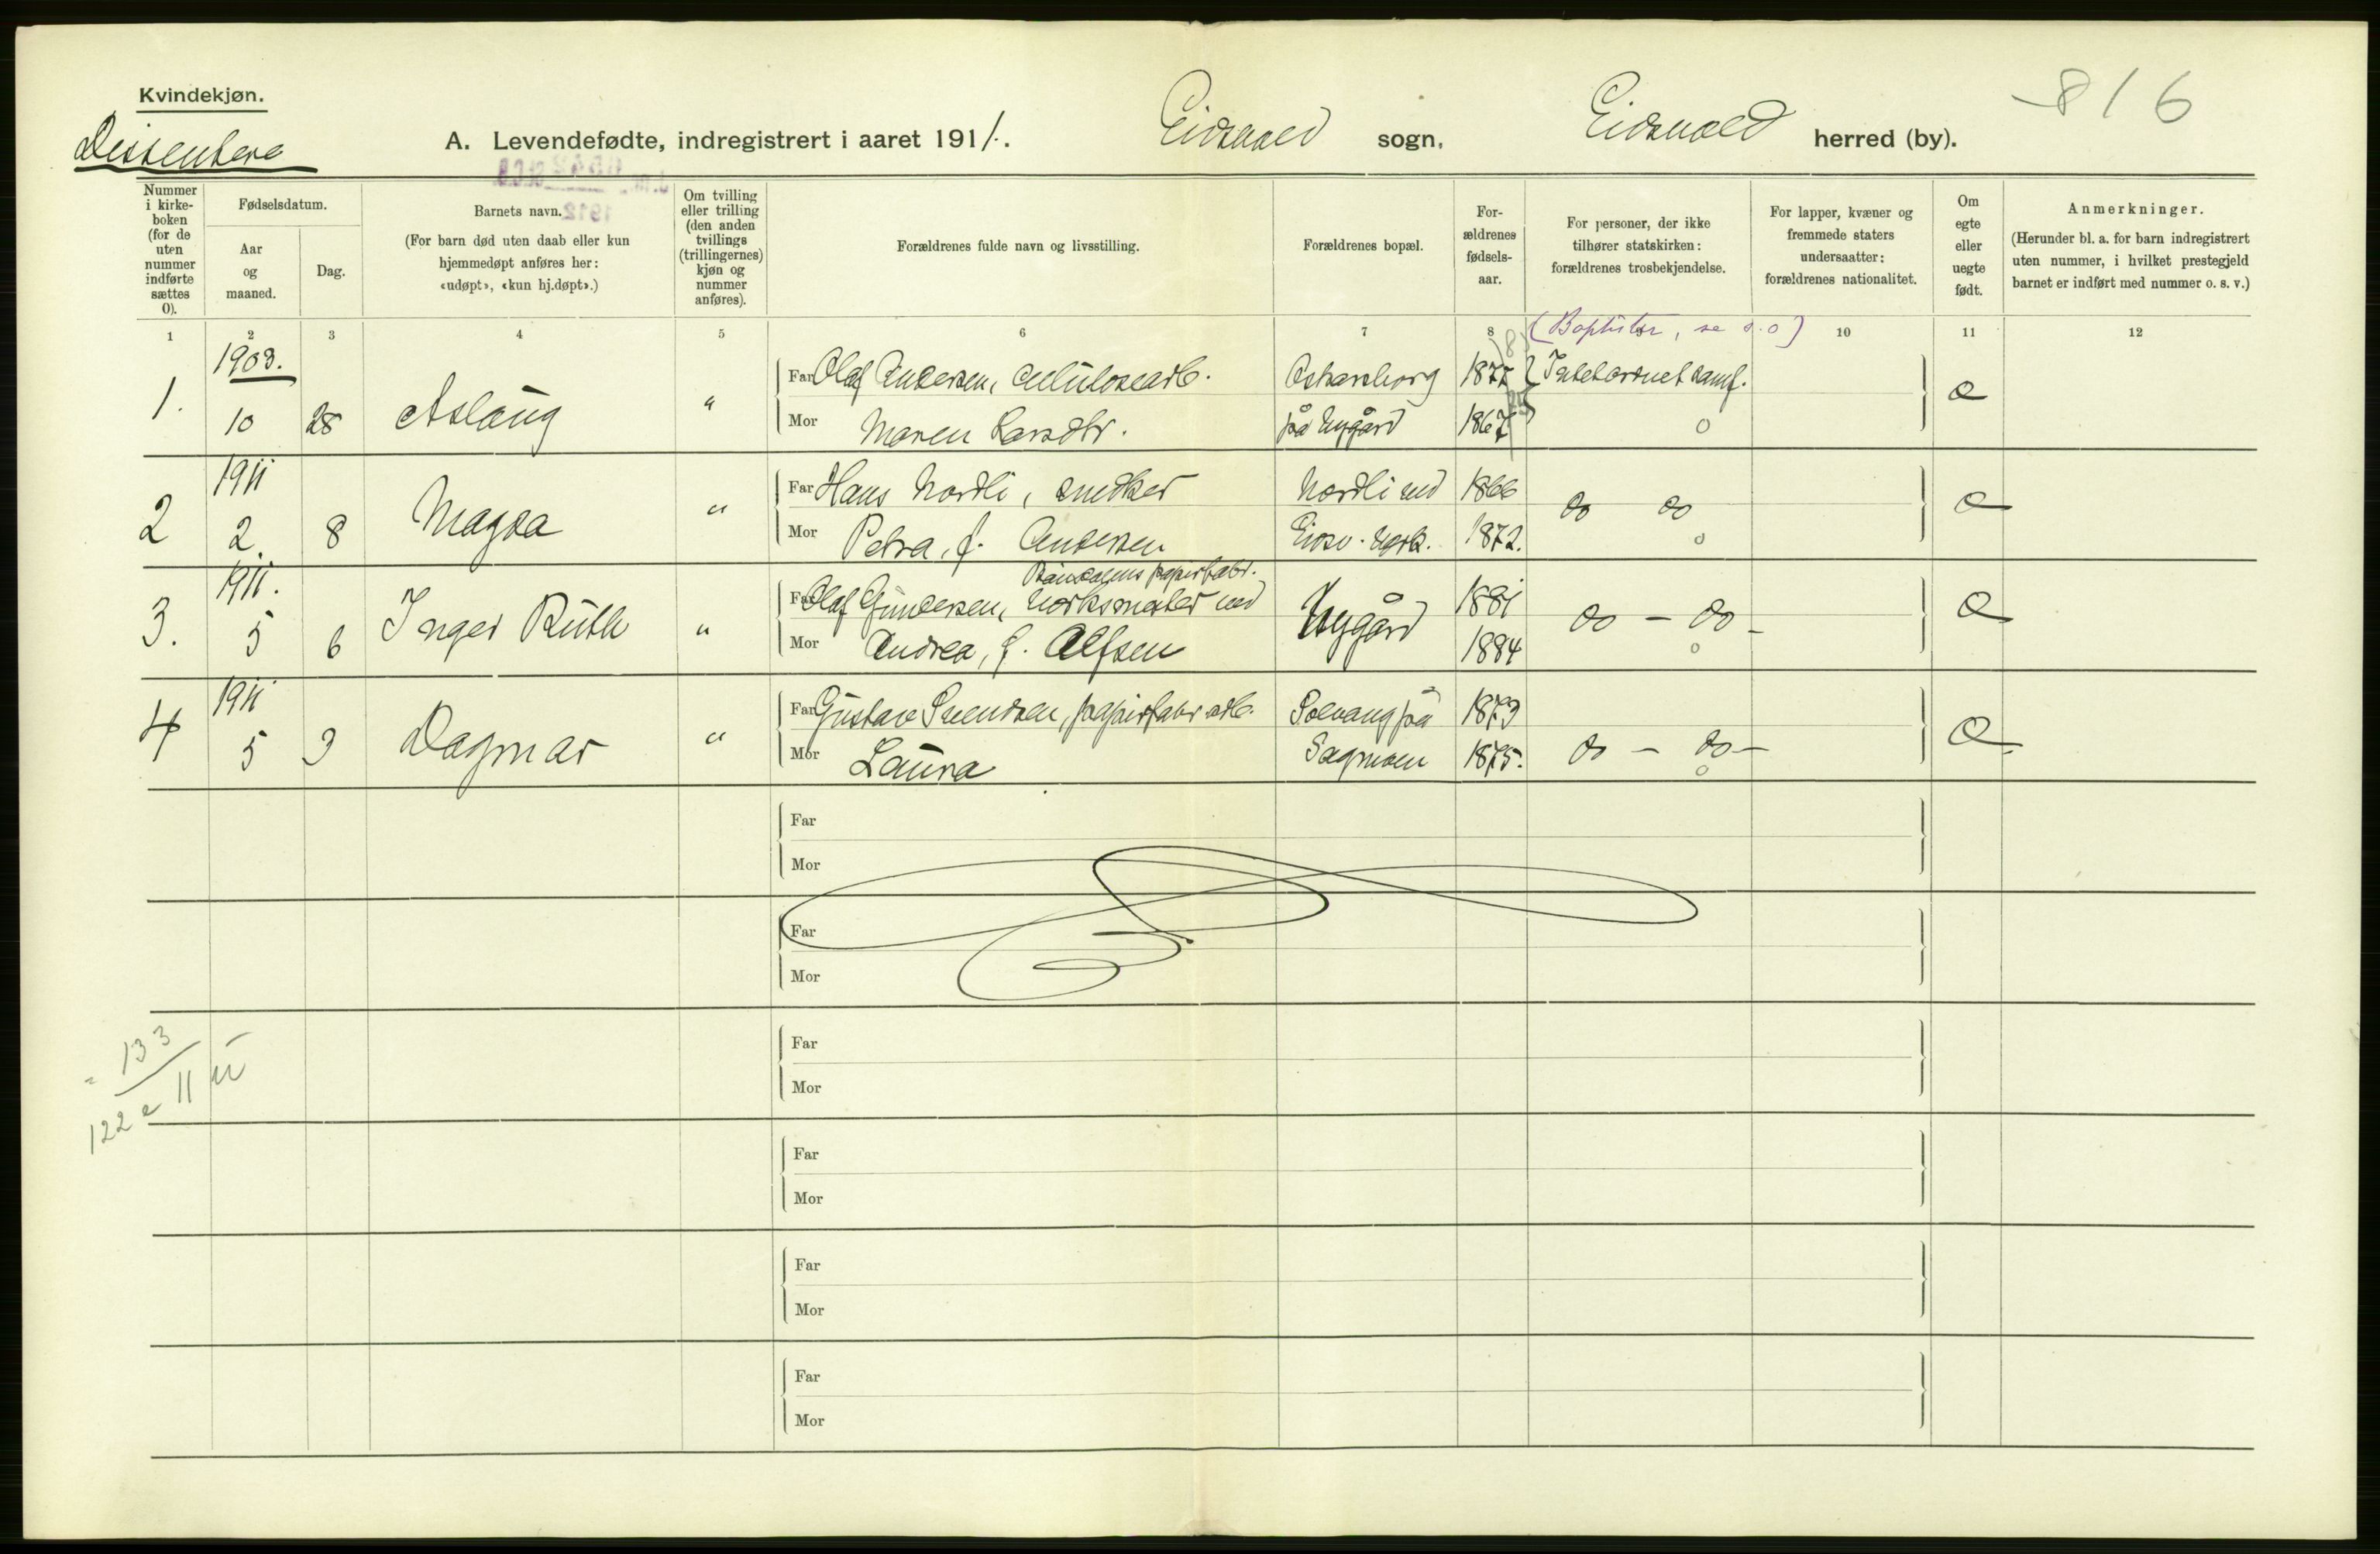 Kvindekjøn.
Dissentere
816
A. Levendefødte, indregistrert i aaret 1911. Eidsvold sogn, Eidsvold herred (by).
1912
Nummer i kirke-boken (for de uten nummer indførte sættes 0).
Fødselsdatum.
Aar og maaned.
Dag.
Barnets navn.
(For barn død uten daab eller kun hjemmedøpt anføres her: «udøpt», «kun hj.døpt».)
Om tvilling eller trilling (den anden tvillings (trillingernes) kjøn og nummer anføres).
Forældrenes fulde navn og livsstilling.
Forældrenes bopæl.
For-ældrenes fødsels-aar.
For personer, der ikke tilhører statskirken: forældrenes trosbekjendelse.
For lapper, kvæner og fremmede staters undersaatter: forældrenes nationalitet.
Om egte eller uegte født.
Anmerkninger.
(Herunder bl. a. for barn indregistrert uten nummer, i hvilket prestegjeld barnet er indført med nummer o. s. v.)
1 2 3 4 5 6 7 8 9 10 11 12
(Baptister, se s. 0)
1. 1903. 10 28 Aslaug " Far Olaf Andersen, celulosearb. Oskarsborg 1877 samf. e
Mor Maren Larsdtr. på Nygård 1867 0
2 1911 2. 8 Magda " Far Hans Nordli, snedker Nordli ved 1866 do do e
Mor Petra, f. Andersen Eidsv. Verk. 1872. 0
papirfabr.
3. 1911. 5 6 Inger Ruth " Far Olaf Gundersen, Verksmester ved Nygård 1881 do - do - e
Mor Andrea, f. Alfsen 1884 0
4 1911 5 9 Dagmar " Far Gustav Svendsen, papirfabr. arb. Solvang på 1879 do - do - e
Mor Laura Sagmoen 1875. 0
Far
Mor
Far
Mor
Far
Mor
Far
Mor
Far
Mor
Far
Mor
= 133
122 e 11 u